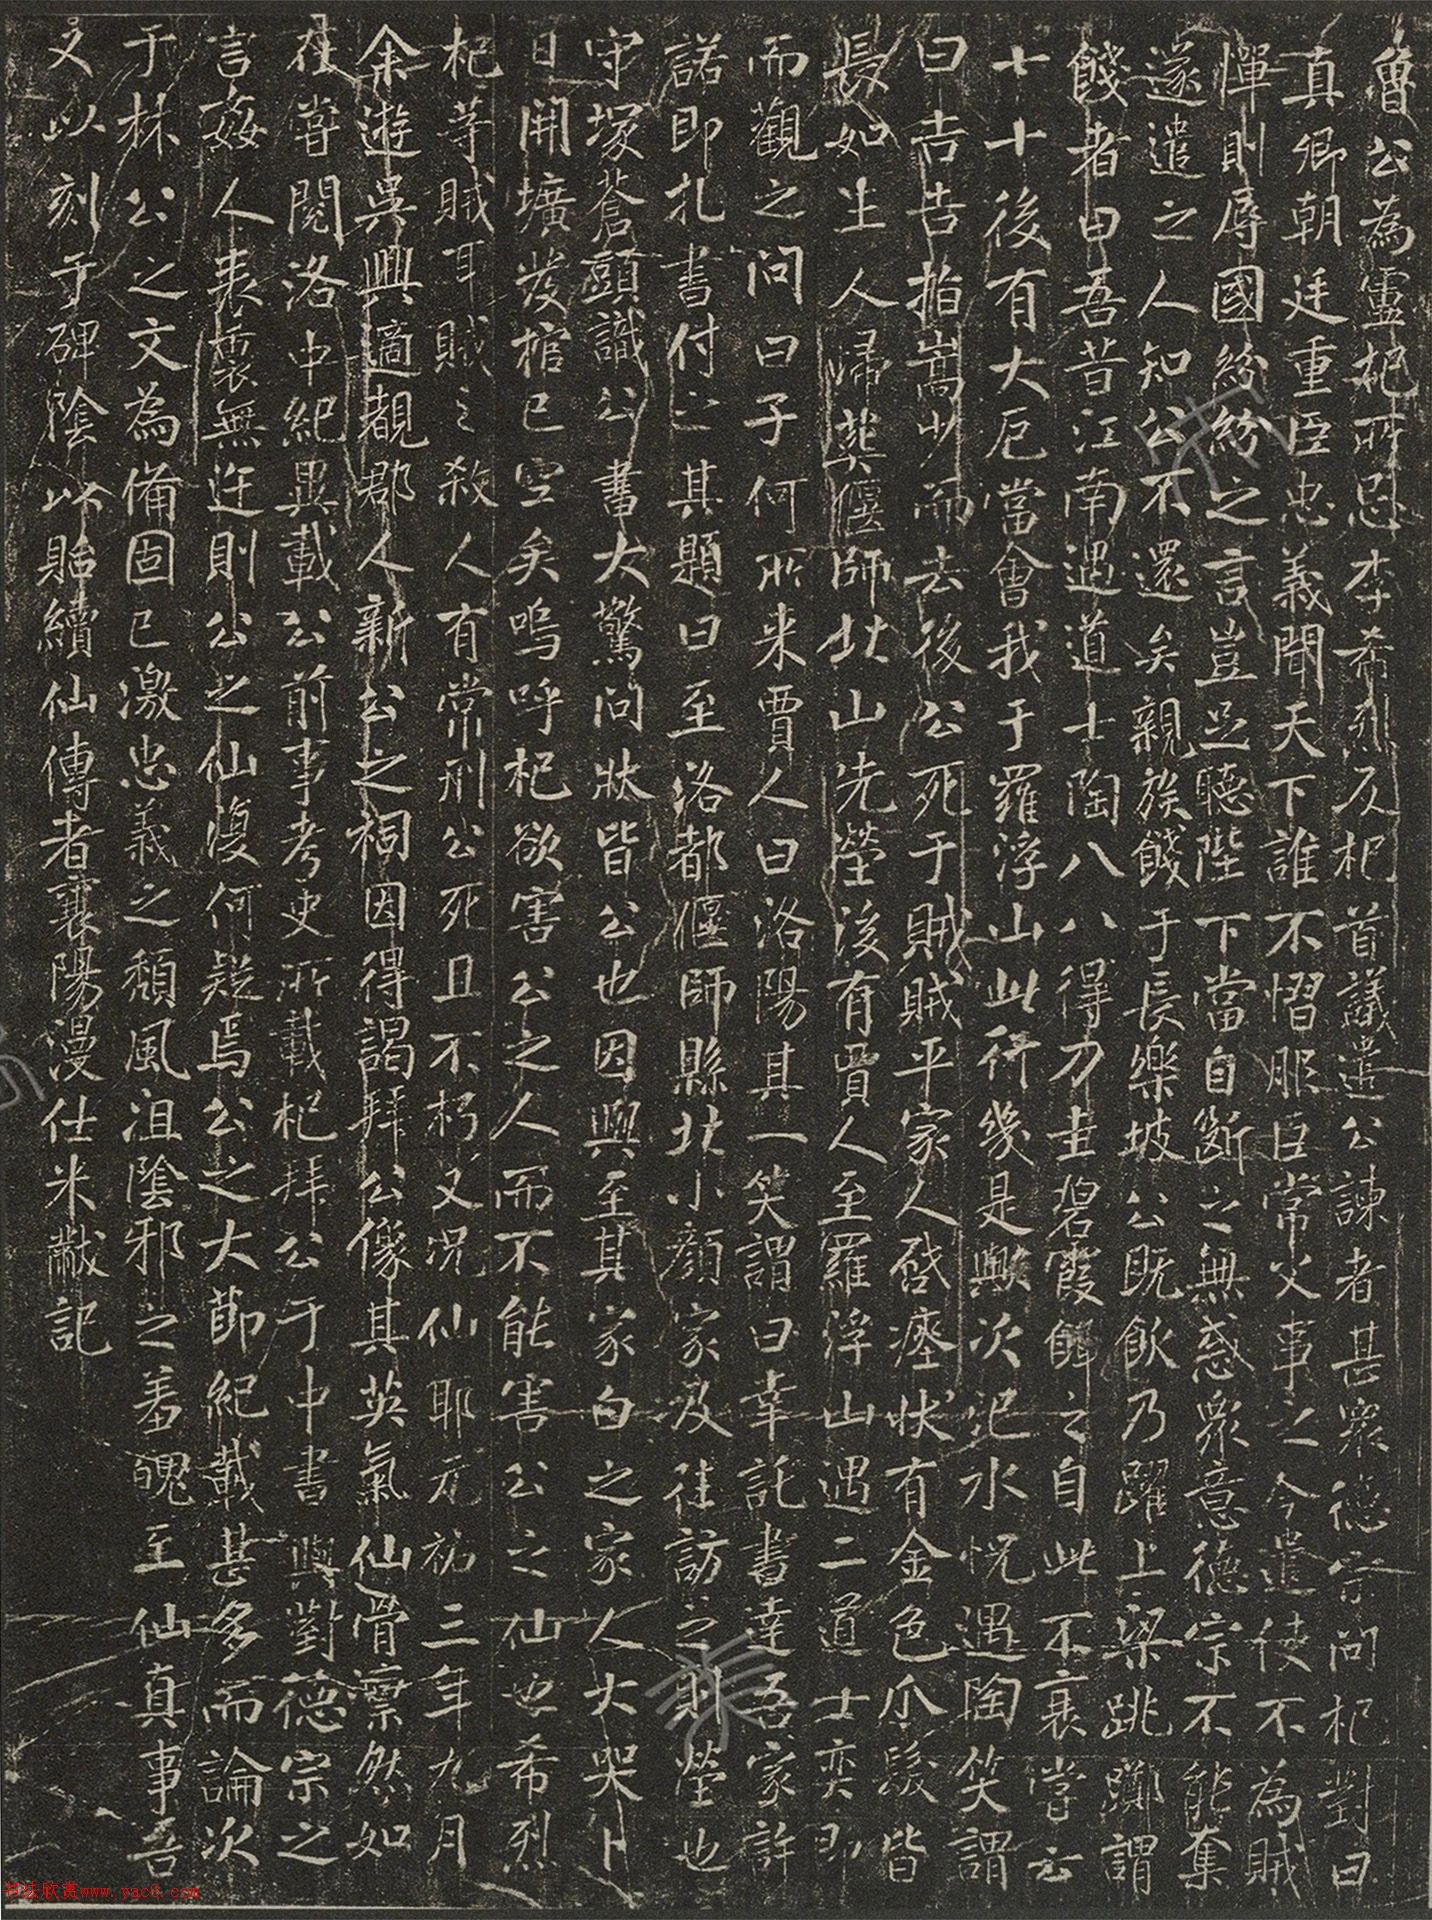 魯公為盧杞所忌李希烈反杞首議遣公諫者甚眾德宗問杞對曰
真卿朝廷重臣忠義聞天下誰不慴服臣常火事之今遣使不為賊
憚則辱國紛紛之言豈足聽陛下當自斷之無惑眾意德宗不能奪
遂遣之人知公不還矣親族餞于長樂坡公既飲乃躍上梁跳躑謂
餞者曰吾昔江南遇道士陶八八得刀圭碧霞餌之自此不衰嘗云
七十後有大厄當會我于羅浮山此行幾是歟次汜水怳遇陶笑謂
曰吉吉指嵩少而去後公死于賊賊平家人啓瘞狀有金色爪髮皆
長如生人歸葬偃師北山先塋後有賈人至羅浮山遇二道士奕即
而觀之問曰子何所来賈人曰洛陽其一笑謂曰幸託書達吾家許
諾即札書付之其題曰至洛都偃師縣北小顏家及往訪之則塋也
守塚蒼頭識公書大驚問狀皆公也因與至其家白之家人大哭卜
日開壙發棺已空矣嗚呼杞欲害公之人而不能害公之仙也希烈
杞等賊耳賊之殺人有常刑公死且不朽又況仙耶元祐三年九月
余遊吳興適覩郡人新公之祠因得謁拜公像其英氣仙骨凜然如
在嘗閱洛中紀異載公前事考史所載杞拜公于中書與對德宗之
言姦人表裏無迕則公之仙復何疑焉公之大節紀載甚多而論次
于林公之文為備固已激忠義之頹風沮陰邪之羞魄至仙真事吾
又以刻于碑陰以貽續仙傳者襄陽漫仕米黻記
书法欣赏www.yac8.com